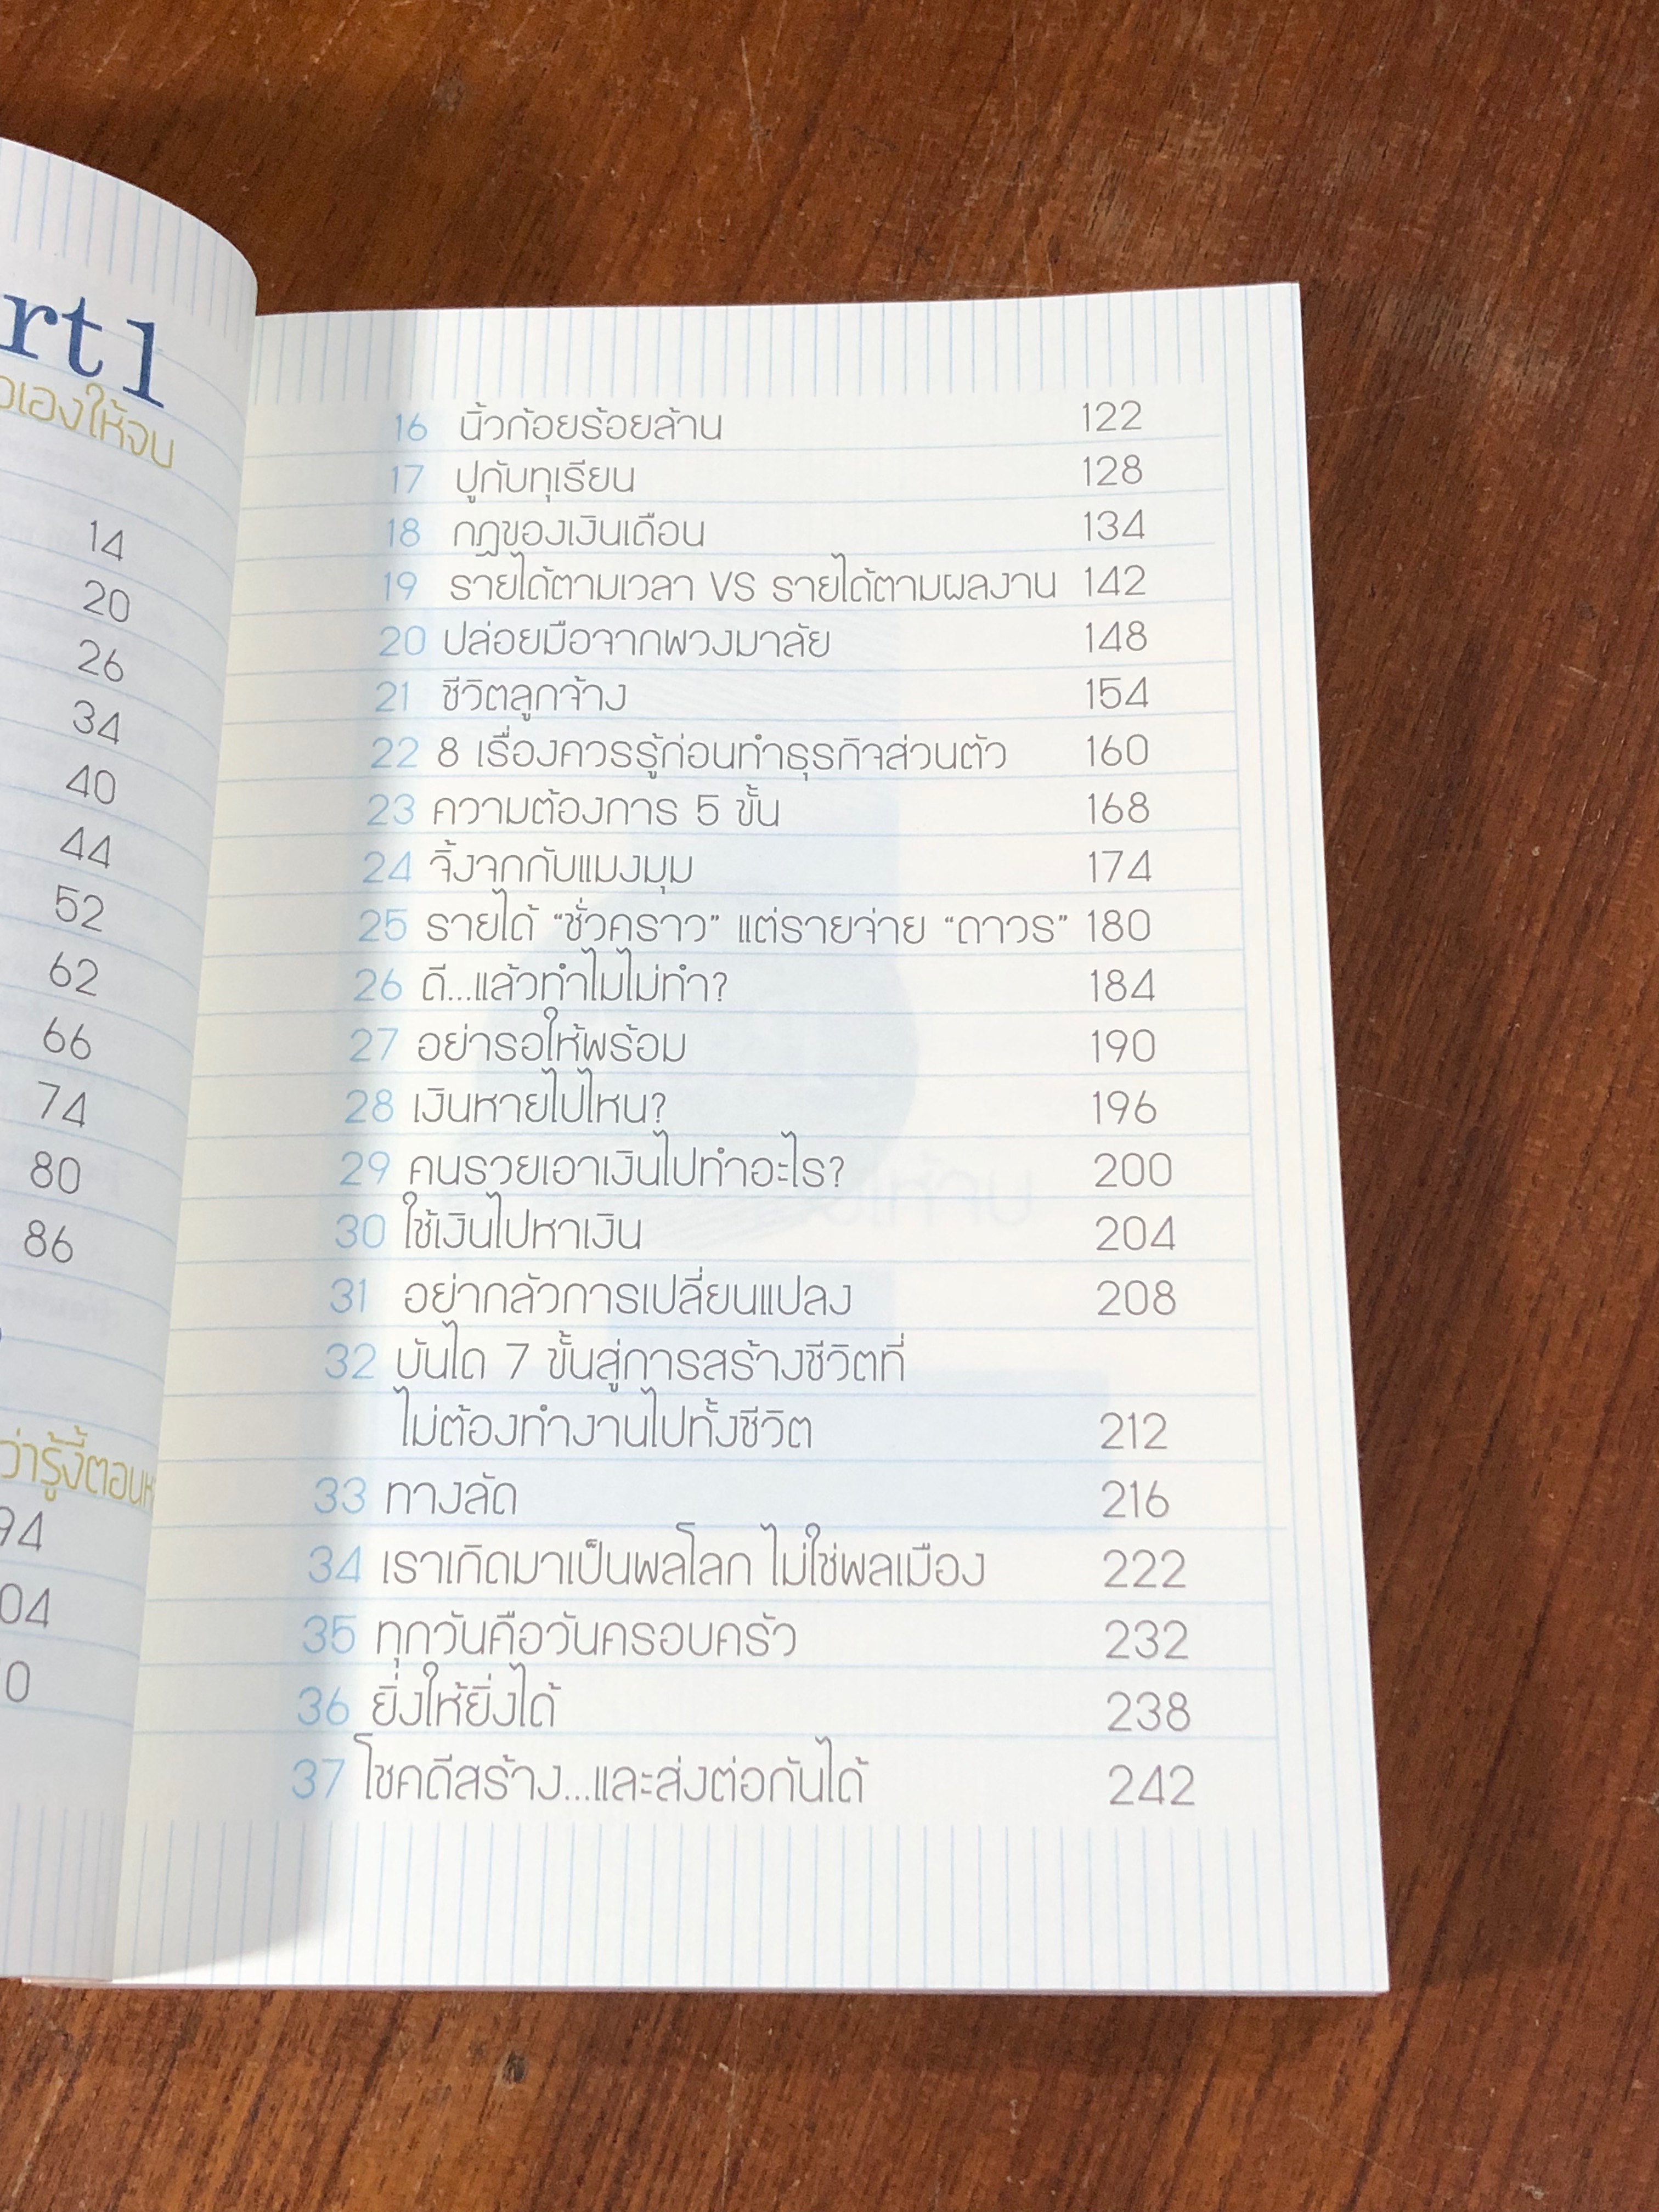 rt 1
วเองให้จน
14
20
26
34
40
44
52
62
66
74
80
86
ว่ารู้งี้ตอนห
94
04
0
16 นิ้วก้อยร้อยล้าน 122
17 ปูกับทุเรียน 128
18 กฎของเงินเดือน 134
19 รายได้ตามเวลา VS รายได้ตามผลงาน 142
20 ปล่อยมือจากพวงมาลัย 148
21 ชีวิตลูกจ้าง 154
22 8 เรื่องควรรู้ก่อนทำธุรกิจส่วนตัว 160
23 ความต้องการ 5 ขั้น 168
24 จิ้งจกกับแมงมุม 174
25 รายได้ “ชั่วคราว” แต่รายจ่าย “ถาวร” 180
26 ดี...แล้วทำไมไม่ทำ? 184
27 อย่ารอให้พร้อม 190
28 เงินหายไปไหน? 196
29 คนรวยเอาเงินไปทำอะไร? 200
30 ใช้เงินไปหาเงิน 204
31 อย่ากลัวการเปลี่ยนแปลง 208
32 บันได 7 ขั้นสู่การสร้างชีวิตที่
ไม่ต้องทำงานไปทั้งชีวิต 212
33 ทางลัด 216
34 เราเกิดมาเป็นพลโลก ไม่ใช่พลเมือง 222
35 ทุกวันคือวันครอบครัว 232
36 ยิ่งให้ยิ่งได้ 238
37 โชคดีสร้าง...และส่งต่อกันได้ 242